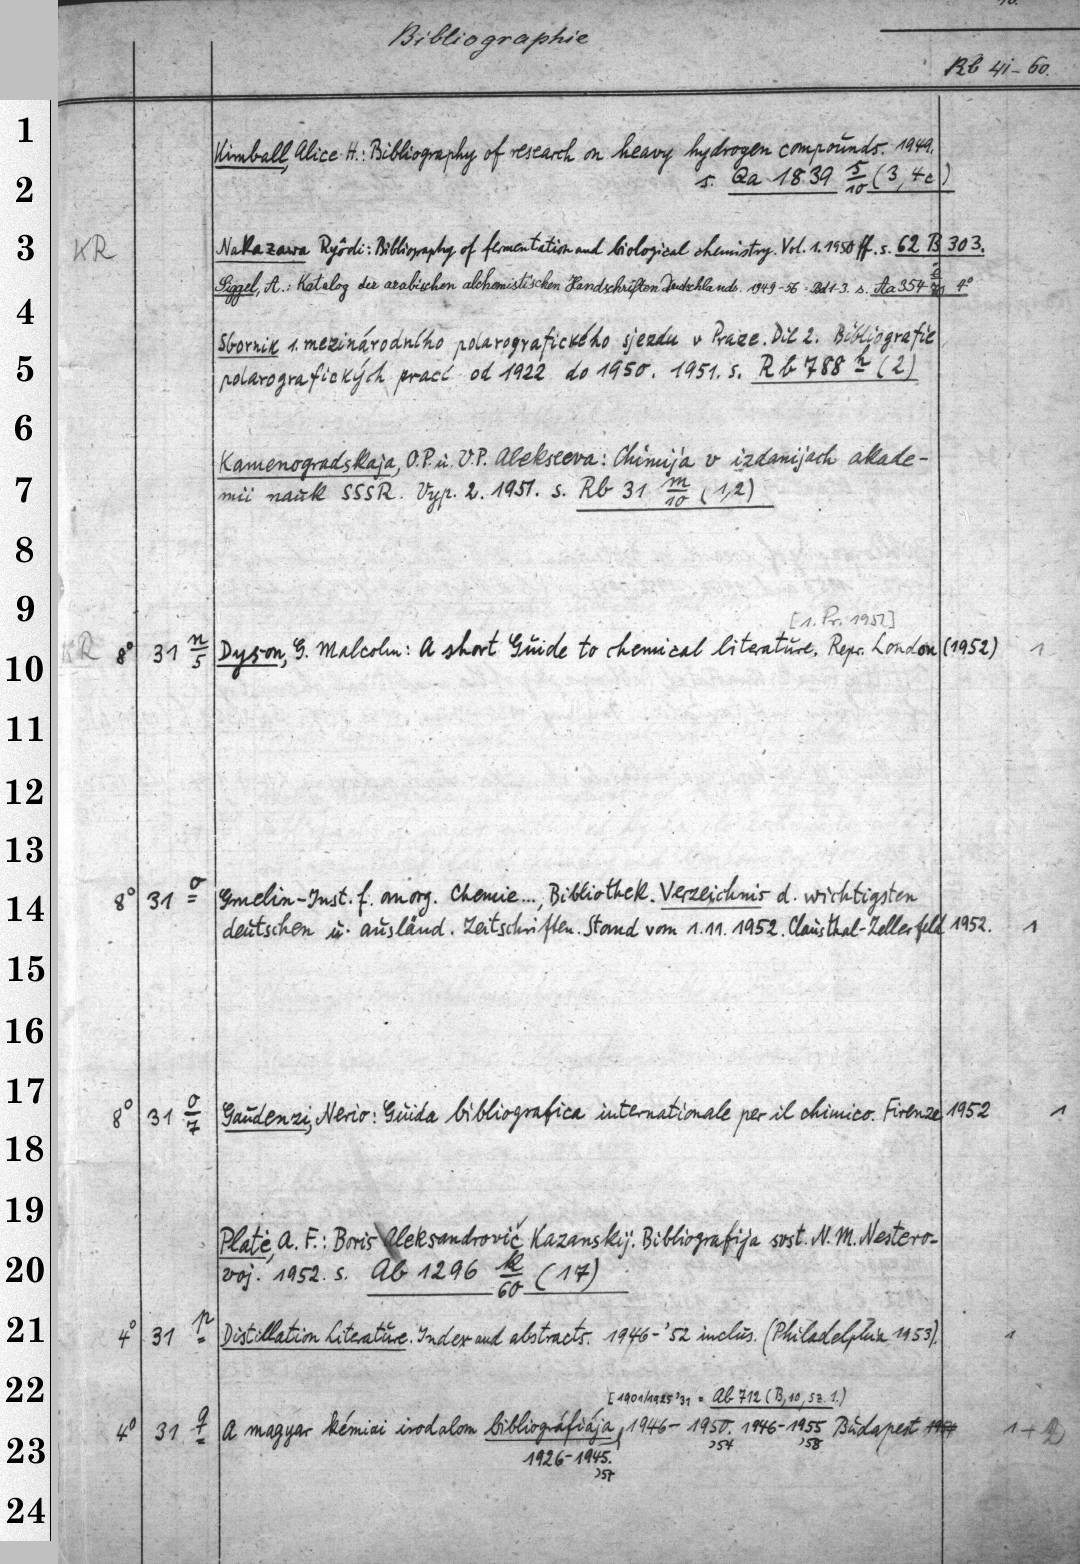 Bibliographie
Rb 41-60.
1
Kimball, Alice H.: Bibliography of research on heavy hydrogen compounds. 1949.
2
s. Qa 1839 5/10 (3,4c)
3
KR
Nakazawa Ryôdi: Bibliography of fermentation and biological chemistry. Vol. 1. 1950 ff. s. 62 B 303.
Siggel, A.: Katalog der arabischen alchemistischen Handschriften Deutschlands. 1949-56. Bd 1-3. s. Aa 354 4°
4
Sborník 1. mezinárodního polarografického sjezdu v Praze. Díl 2. Bibliografie
5
polarografických prací od 1922 do 1950. 1951. s. Rb 788 h (2)
6
Kamenogradskaja, O.P. u. V.P. Alekseeva: Chimija v izdanijach akade-
7
mii nauk SSSR. Vyp. 2. 1951. s. Rb 31 m/10 (1,2)
8
9
[1. Pr. 1951]
KR 8° 31 n/5 Dyson, G. Malcolm: A short Guide to chemical literature. Repr. London (1952) 1
10
11
12
13
8° 31 o Gmelin-Inst. f. anorg. Chemie..., Bibliothek. Verzeichnis d. wichtigsten
14
deutschen u. ausländ. Zeitschriften. Stand vom 1.11.1952. Clausthal-Zellerfeld 1952. 1
15
16
17
8° 31 o/7 Gaudenzi, Nerio: Guida bibliografica internationale per il chimico. Firenze 1952 1
18
19
Platė, A. F.: Boris Aleksandrovič Kazanskij. Bibliografija sost. N. M. Nestero-
20
voj. 1952. s. Ab 1296 k/60 (17)
21
4° 31 p Distillation Literature. Index and abstracts. 1946-'52 inclus. (Philadelphia 1953). 1
22
[1901/1925 '31 = Ab 712 (B,10, sz. 1.)
4° 31 q A magyar kémiai irodalom bibliográfiája, 1946-1950. 1946-1955 Budapest 1954 1+2
23
)54 )58
1926-1945.
)57
24